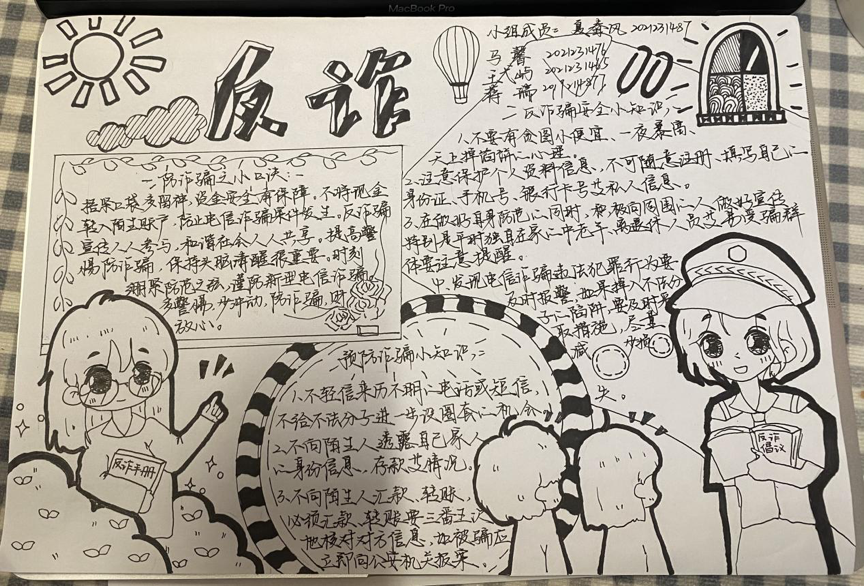 MacBook Pro
反诈
小组成员：
2021231487
马馨 2021231476
2021231465
蒋瑞
二反诈骗安全小知识：
1.不要有贪图小便宜、一夜暴富、
天上掉馅饼心理。
2.注意保护个人资料信息，不可随意注册、填写自己
身份证、手机号、银行卡号等私人信息。
3.在做好自身防范同时，积极向周围人做好宣传
特别是平时独自在家中老年、离退休人员等易受骗群
体要注意提醒。
4.发现电信诈骗违法犯罪行为要
及时报警，如果掉入不法分
子陷阱，要及时采
取措施，尽量
减少损
失。
一防诈骗之小口诀：
捂紧口袋多留神，资金安全有保障。不将现金
转入陌生账户，防止电信诈骗案件发生。反诈骗
宣传人人参与，和谐社会人人共享。提高警
惕防诈骗，保持头脑清醒很重要。时刻
绷紧防范之弦，谨防新型电信诈骗
多警惕，少冲动，防诈骗，时
放心。
预防诈骗小知识：
1.不轻信来历不明电话或短信，
不给不法分子进一步设圈套机会。
2.不向陌生人透露自己家人
身份信息、存款等情况。
3.不向陌生人汇款、转账，
必须汇款、转账要三番五次
地核对对方信息，如被骗应
立即向公安机关报案。
反诈手册
反诈
倡议